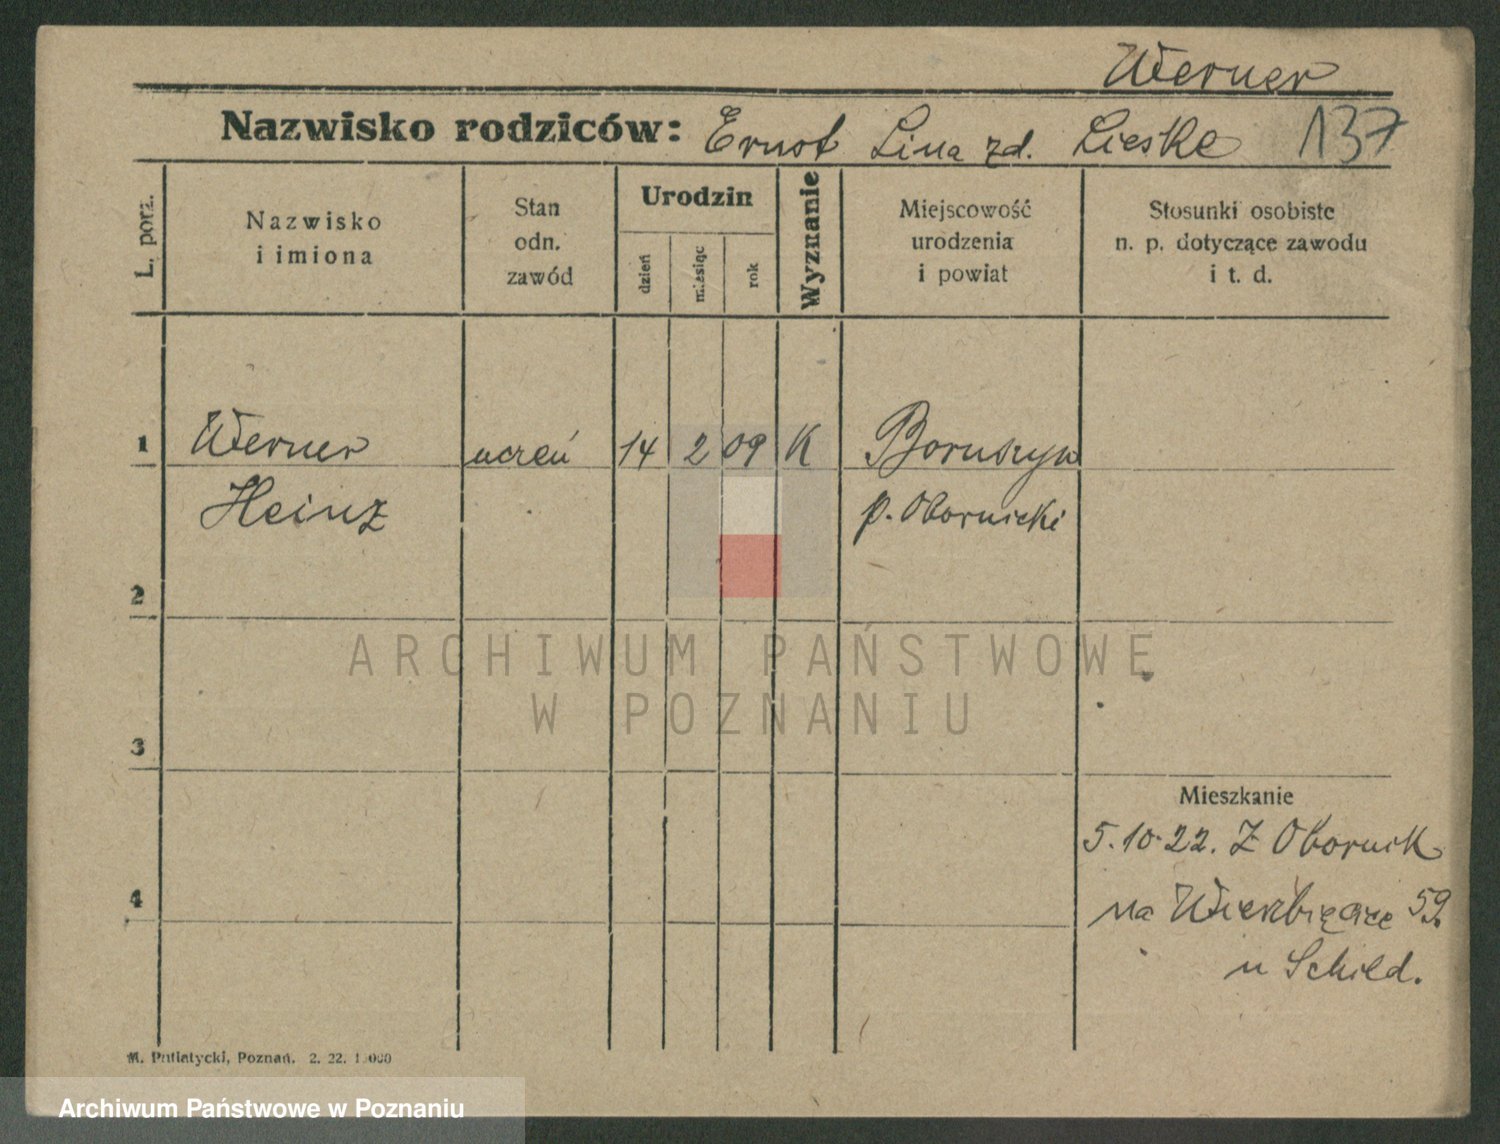 Werner
Nazwisko rodziców: Ernst Lina zd. Lieske 137
L. porz.
Nazwisko
i imiona
Stan
odn.
zawód
Urodzin
dzień
miesiąc
rok
Wyznanie
Miejscowość
urodzenia
i powiat
Stosunki osobiste
n. p. dotyczące zawodu
i t. d.
1 Werner uczeń 14 2 09 K Boruszyn
Heinz p. Obornicki
2
3
4
Mieszkanie
5.10.22. Z Obornik
na Wierzbięcice 59.
u Schild.
M. Putiatycki, Poznań. 2. 22.
ARCHIWUM PAŃSTWOWE
W POZNANIU
Archiwum Państwowe w Poznaniu